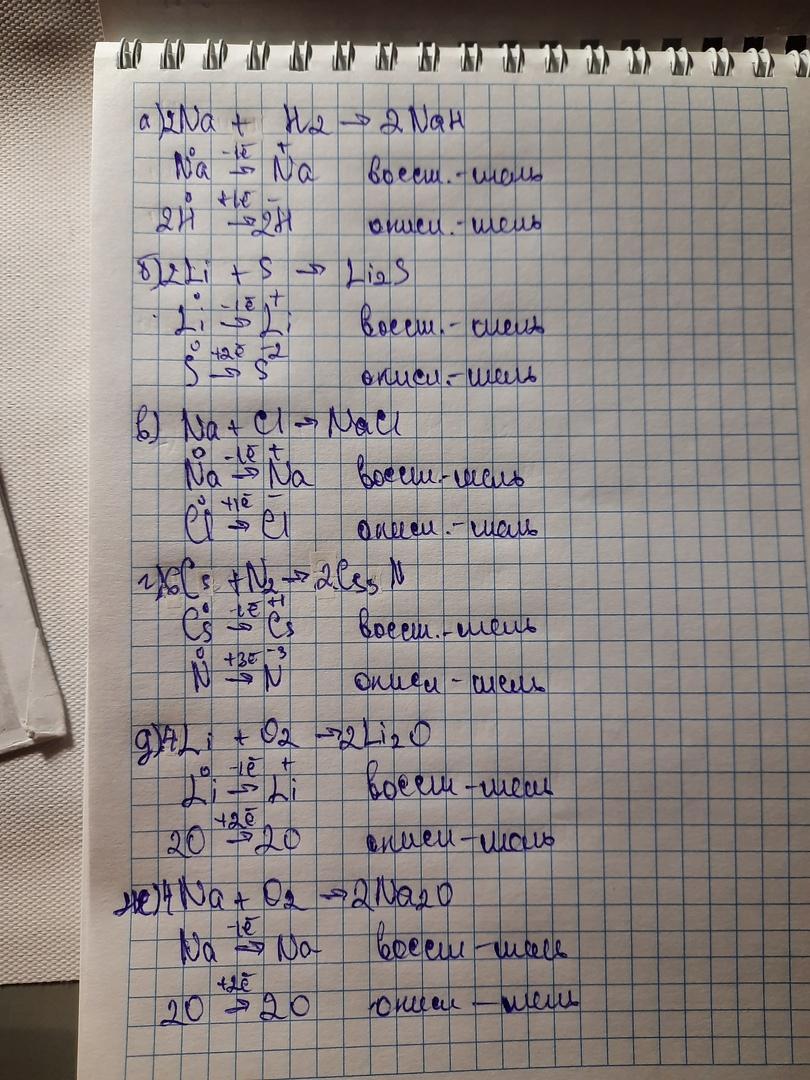 а) 2Na + H₂ → 2NaH
Na⁰ –1ē→ Na⁺ восст.-тель
2H⁰ +1ē→ 2H⁻ окисл.-тель
б) 2Li + S → Li₂S
Li⁰ –1ē→ Li⁺ восст.-тель
S⁰ +2ē→ S⁻² окисл.-тель
в) Na + Cl → NaCl
Na⁰ –1ē→ Na⁺ восст.-тель
Cl⁰ +1ē→ Cl⁻ окисл.-тель
г) 6Cs + N₂ → 2Cs₃N
Cs⁰ –1ē→ Cs⁺¹ восст.-тель
N⁰ +3ē→ N⁻³ окисл-тель
д) 4Li + O₂ → 2Li₂O
Li⁰ –1ē→ Li⁺ восст-тель
2O +2ē→ 2O окисл-тель
ж) 4Na + O₂ → 2Na₂O
Na –1ē→ Na восст-тель
2O +2ē→ 2O окисл-тель